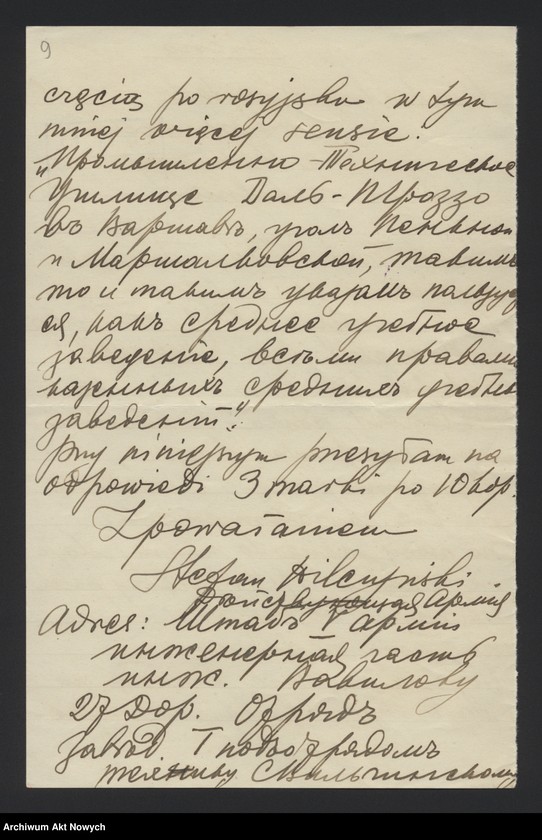 9
częcią po rosyjsku w tym
mniej więcej sensie.
"Промышленно-Техническое
Училище Даль-Троззо
въ Варшавѣ, уголъ
и Маршалковской, такимъ
то и такимъ указамъ пользует
ся, какъ среднее учебное
заведеніе, всѣми правами
казенныхъ среднихъ учебн
заведеній."
Przy niniejszym przesyłam na
odpowiedź 3 marki po 10 kop.
Z poważaniem
Stefan
Дѣйствующая Армія
Adres: Штабъ V арміи
инженерная часть
инж. Вавилову
27 Дор. Отрядъ
завѣд I подотрядомъ
технику
Archiwum Akt Nowych